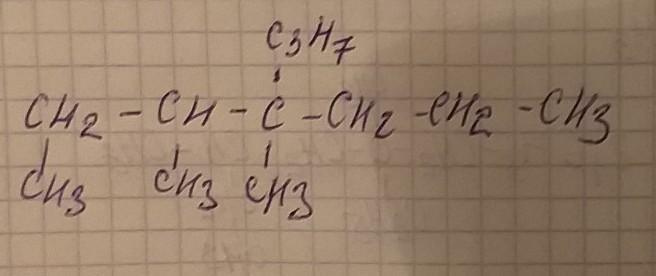 C3H7
CH2 - CH - C - CH2 - CH2 - CH3
CH3 CH3 CH3